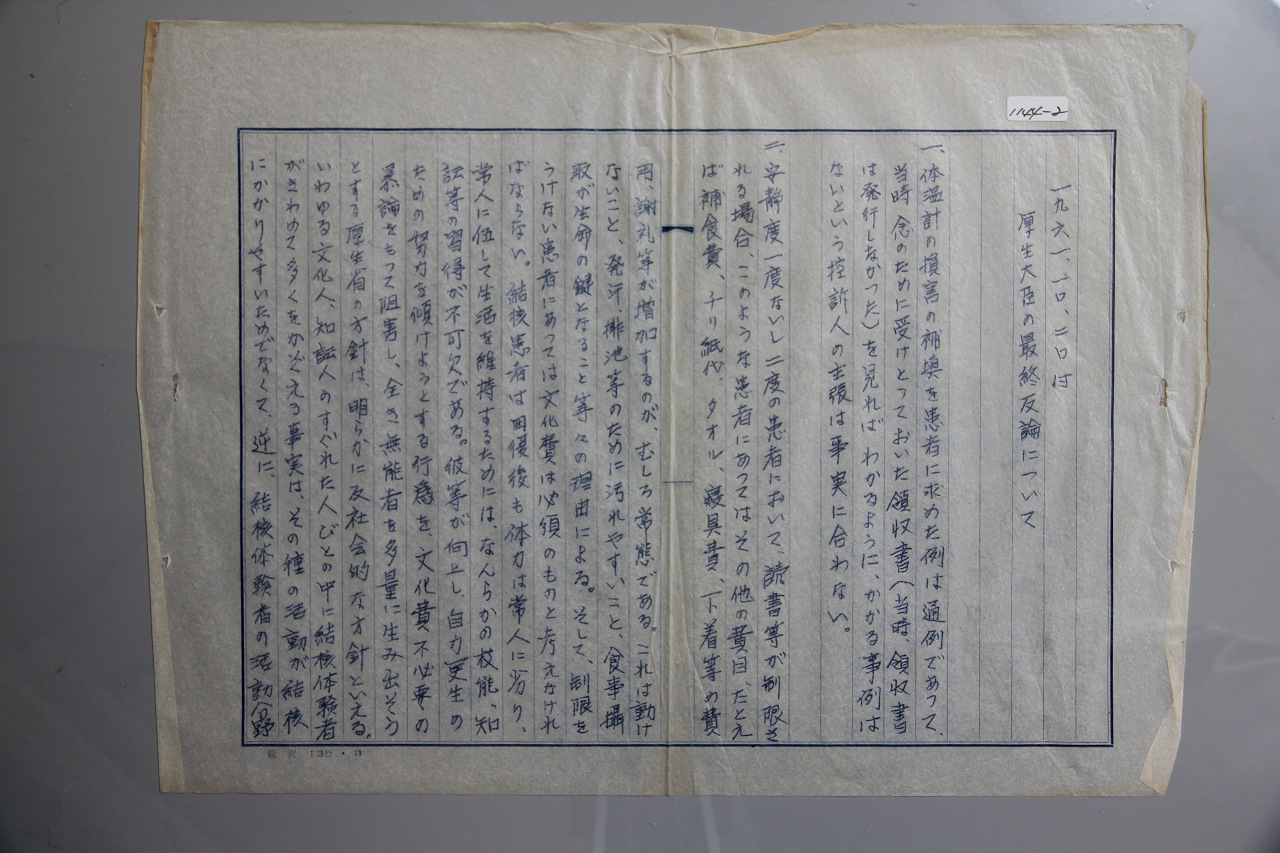 1144-2
一九六一、一〇、二〇付
厚生大臣の最終反論について
一、体温計の損害の補填を患者に求めた例は通例であって、
当時念のために受けとっておいた領収書(当時、領収書
は発行しなかった)を見ればわかるように、かかる事例は
ないという控訴人の主張は事実に合わない。
二、安静度一度ないし二度の患者において、読書等が制限さ
れる場合、このような患者にあってはその他の費目、たとえ
ば補食費、チリ紙代、タオル、寝具費、下着等の費
用、謝礼等が増加するのが、むしろ常態である。これは動け
ないこと、発汗、排泄等のために汚れやすいこと、食事攝
取が生命の鍵となること等々の理由による。そして、制限を
うけない患者にあっては文化費は必須のものと考えなけれ
ばならない。結核患者は回復後も体力は常人に劣り、
常人に伍して生活を維持するためには、なんらかの技能、知
識等の習得が不可欠である。彼等が向上し、自力更生の
ための努力を傾けようとする行為を、文化費不必要の
暴論をもって阻害し、全き無能者を多量に生み出そう
とする厚生省の方針は、明らかに反社会的な方針といえる。
いわゆる文化人、知識人のすぐれた人びとの中に結核体験者
がきわめて多くをかぞえる事実は、その種の活動が結核
にかかりやすいためでなくて、逆に、結核体験者の活動分野
13行・